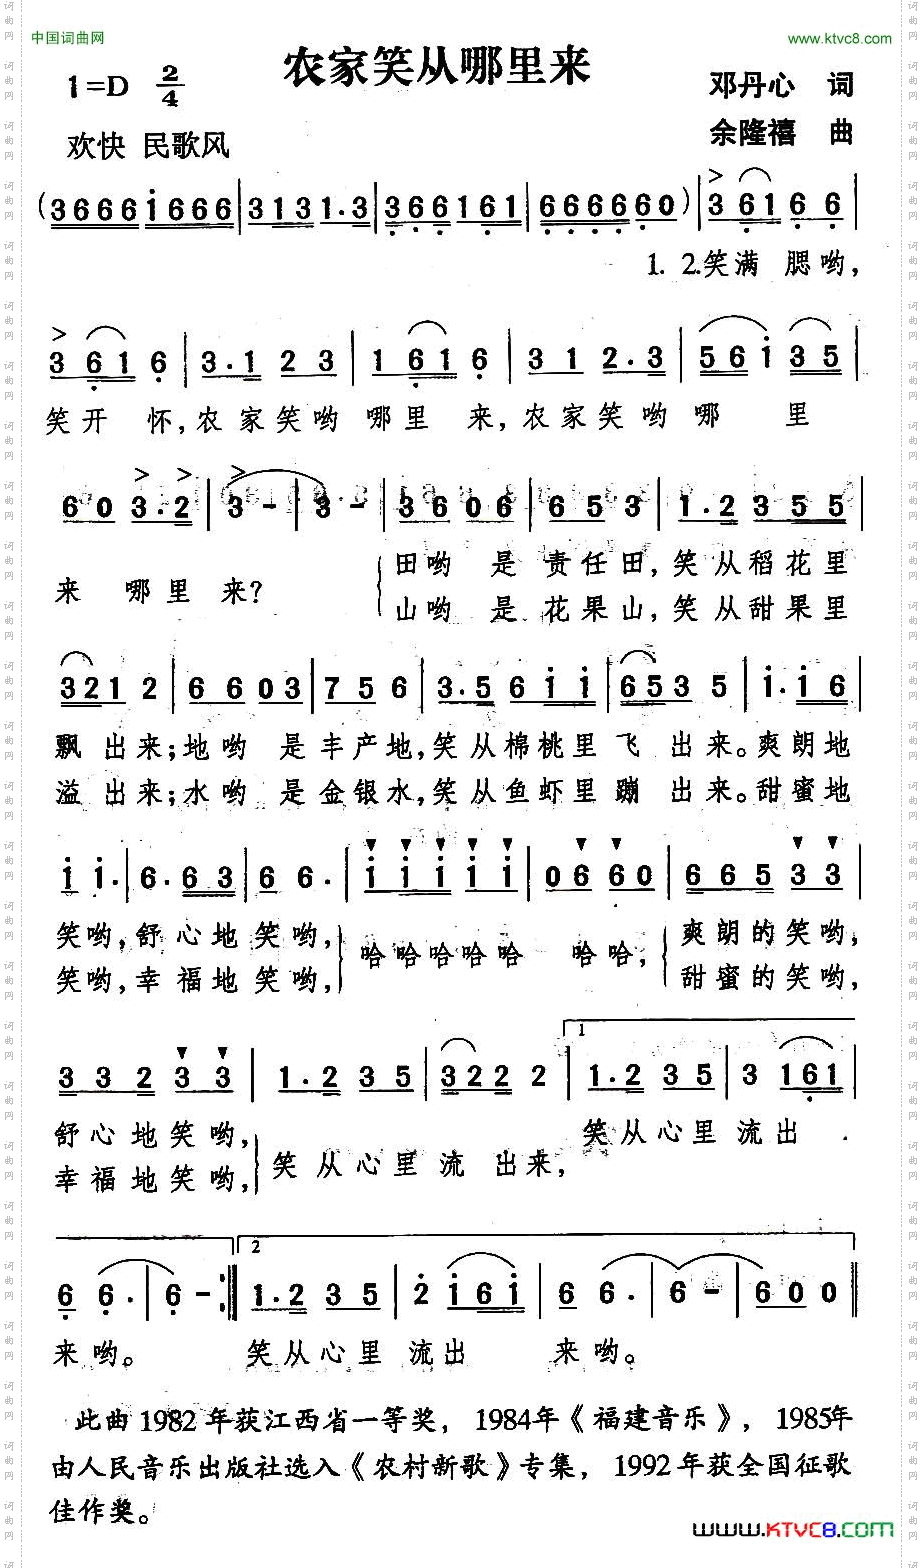 中国词曲网
www.ktvc8.com
农家笑从哪里来
1=D 2/4
邓丹心 词
欢快 民歌风
余隆禧 曲
(3666i666|31311.3|366161|6666660)|36166|
1. 2.笑满 腮哟,
3616|3.123|1616|312.3|56i35|
笑开 怀,农家笑哟 哪里 来,农家笑哟哪 里
603.2|3-|3-|3606|653|1.2355|
来 哪里 来?
田哟 是 责任田,笑从稻花里
山哟 是 花果山,笑从甜果里
3212|6603|756|3.56ii|65355|i.i6|
飘 出来;地哟 是丰产地,笑从棉桃里飞 出来。爽朗地
溢 出来;水哟 是金银水,笑从鱼虾里蹦 出来。甜蜜地
ii.|6.663|66.|iiiii|0660|66533|
笑哟,舒心地笑哟,
笑哟,幸福地笑哟,
哈哈哈哈哈 哈哈,
爽朗的笑哟,
甜蜜的笑哟,
33233|1.235|32222|1.235|3161|
1
舒心地笑哟,
幸福地笑哟,
笑从心里流 出来,
笑从心里 流出
66.|6-:|1.235|2i6i|66.|6-|600‖
2
来哟。 笑从心里 流出 来哟。
此曲1982年获江西省一等奖，1984年《福建音乐》，1985年
由人民音乐出版社选入《农村新歌》专集，1992年获全国征歌
佳作奖。
www.KTVC8.com